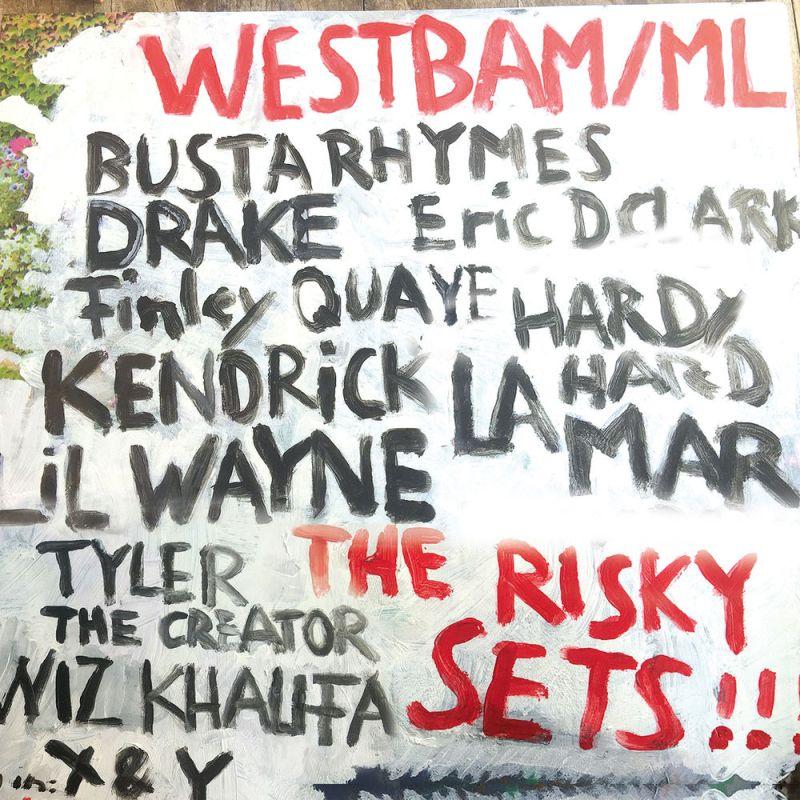 WESTBAM/ML
BUSTA RHYMES
DRAKE Eric D CLARK
Finley QUAYE HARDY
HARD
KENDRICK LAMAR
LiL WAYNE
TYLER THE RISKY
THE CREATOR SETS!!!
WIZ KHALIFA
in: X & Y